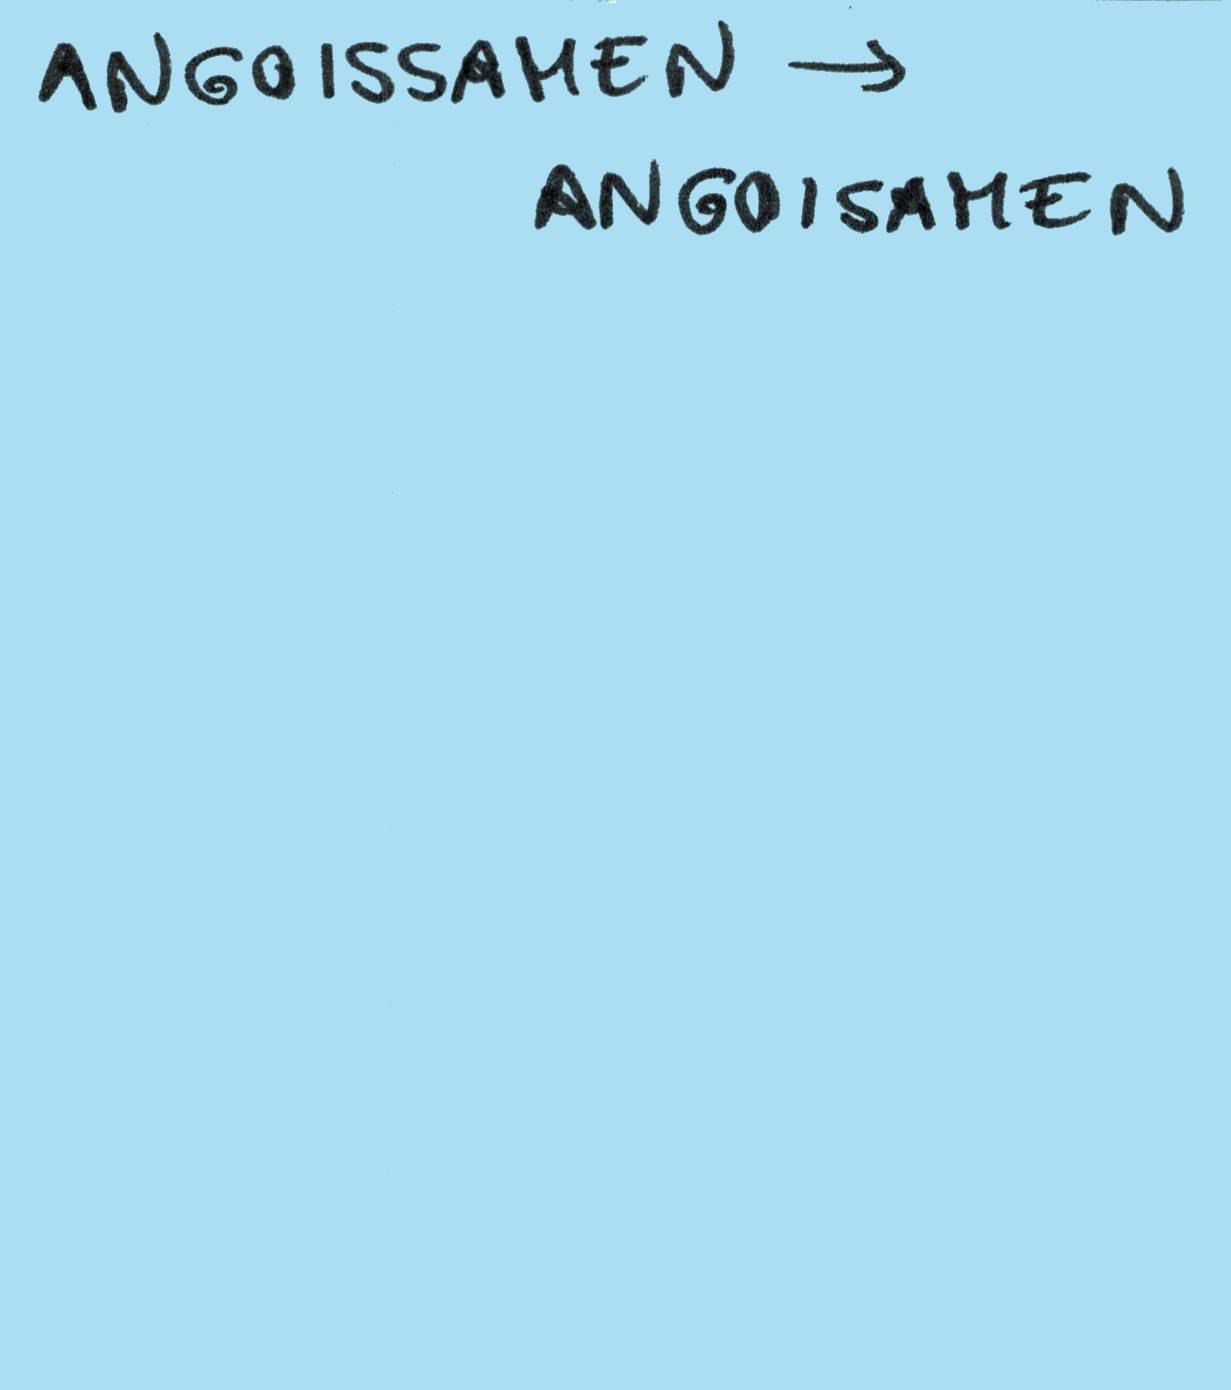 ANGOISSAMEN →
ANGOISAMEN